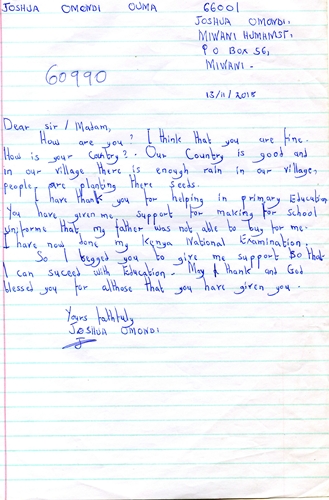 JOSHUA OMONDI OUMA 66001
JOSHUA OMONDI.
MIWANI HUMANIST.
P O BOX 56,
MIWANI.
60990
13/11/2015
Dear sir / Madam,
How are you? I think that you are fine.
How is your Country?. Our Country is good and
in our village there is enough rain in our village,
people are planting there seeds.
I have thank you for helping in primary Education
You have given me support for making for school
uniforms that my father was not able to buy for me.
I have now done my Kenya National Examination.
So I begged you to give me support so that
I can suceed with Education. May I thank and God
blessed you for allthose that you have given you.
Yours faithfuly
JOSHUA OMONDI